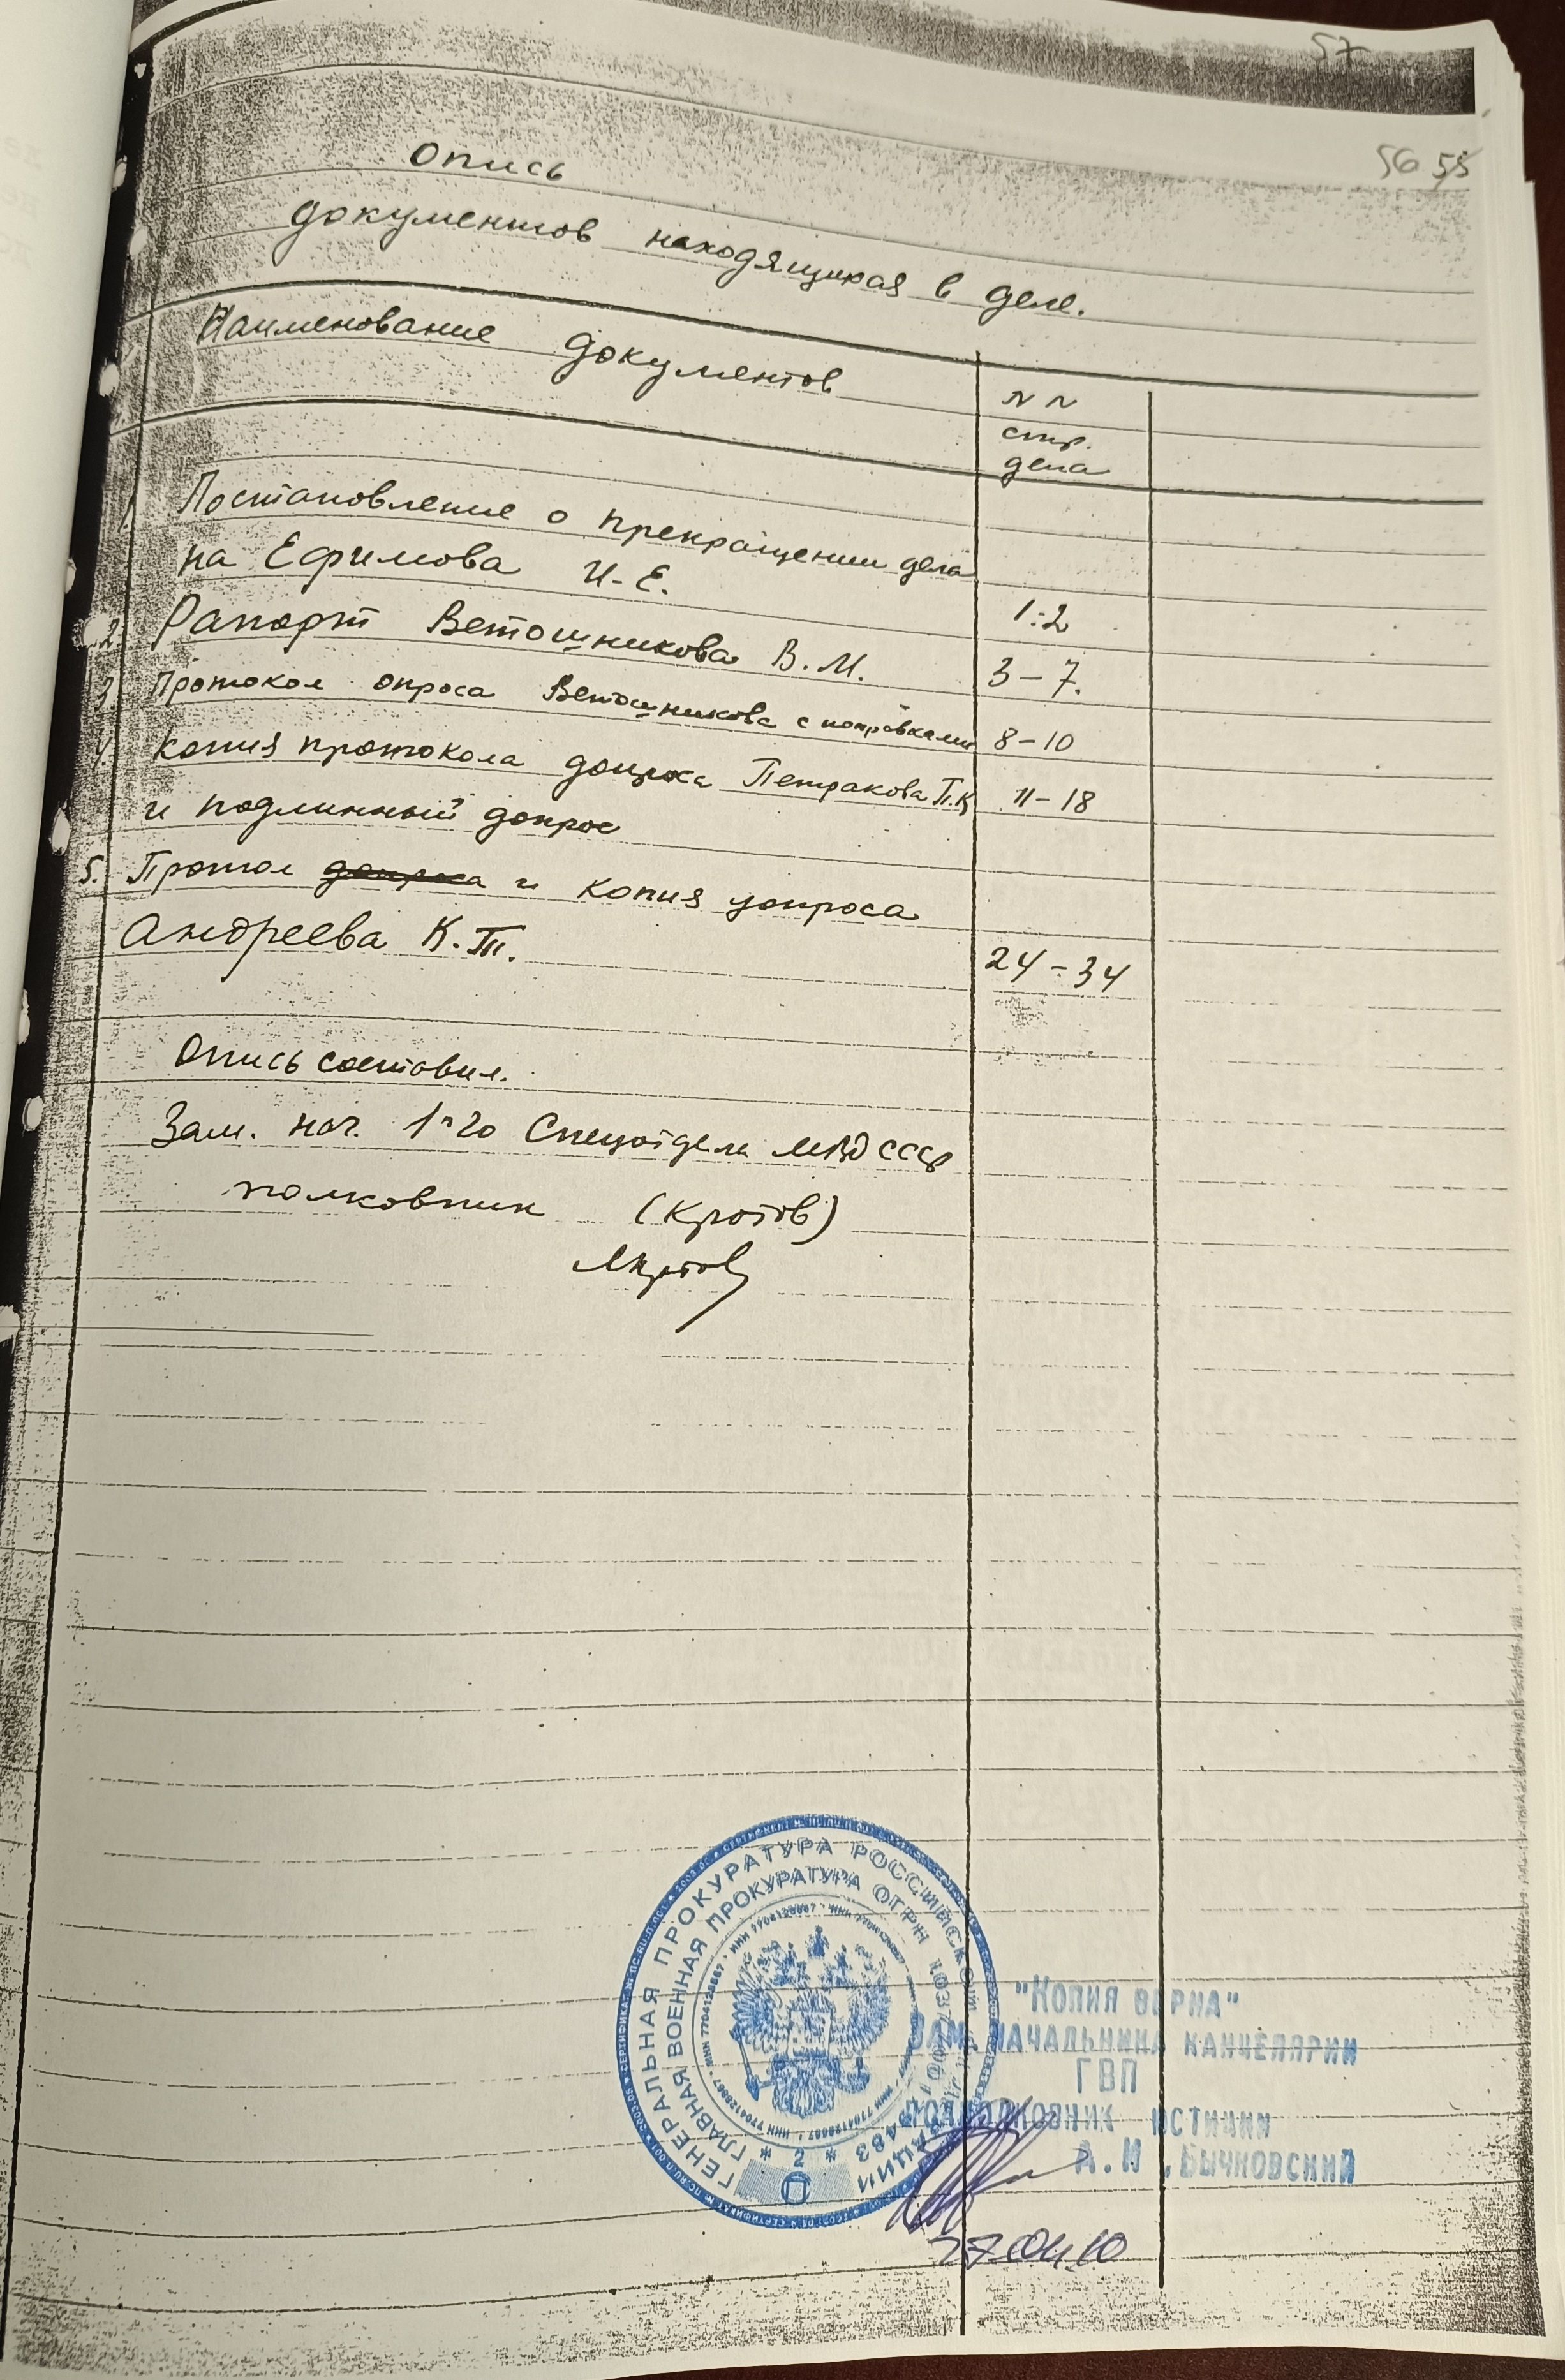 57
56 55
Опись
документов находящихся в деле.
Наименование документов
NN
стр.
дела
1. Постановление о прекращении дела
на Ефимова И.Е. 1-2
2. Рапорт Ветошникова В.М. 3-7.
3. Протокол опроса Ветошникова с поправками 8-10
4. Копия протокола допроса Петракова П.К 11-18
и подлинный допрос
5. Протокол допроса и копия допроса
Андреева К.Т. 24-34
Опись составил.
Зам. нач. 1го Спецотдела МВД СССР
полковник (Кротов)
ГЕНЕРАЛЬНАЯ ПРОКУРАТУРА РОССИЙСКОЙ ФЕДЕРАЦИИ
ГЛАВНАЯ ВОЕННАЯ ПРОКУРАТУРА ОГРН
ИНН 7704128667
* 2 *
"Копия верна"
Зам. начальника канцелярии
ГВП
подполковник юстиции
А.И. Бычковский
27.04.10